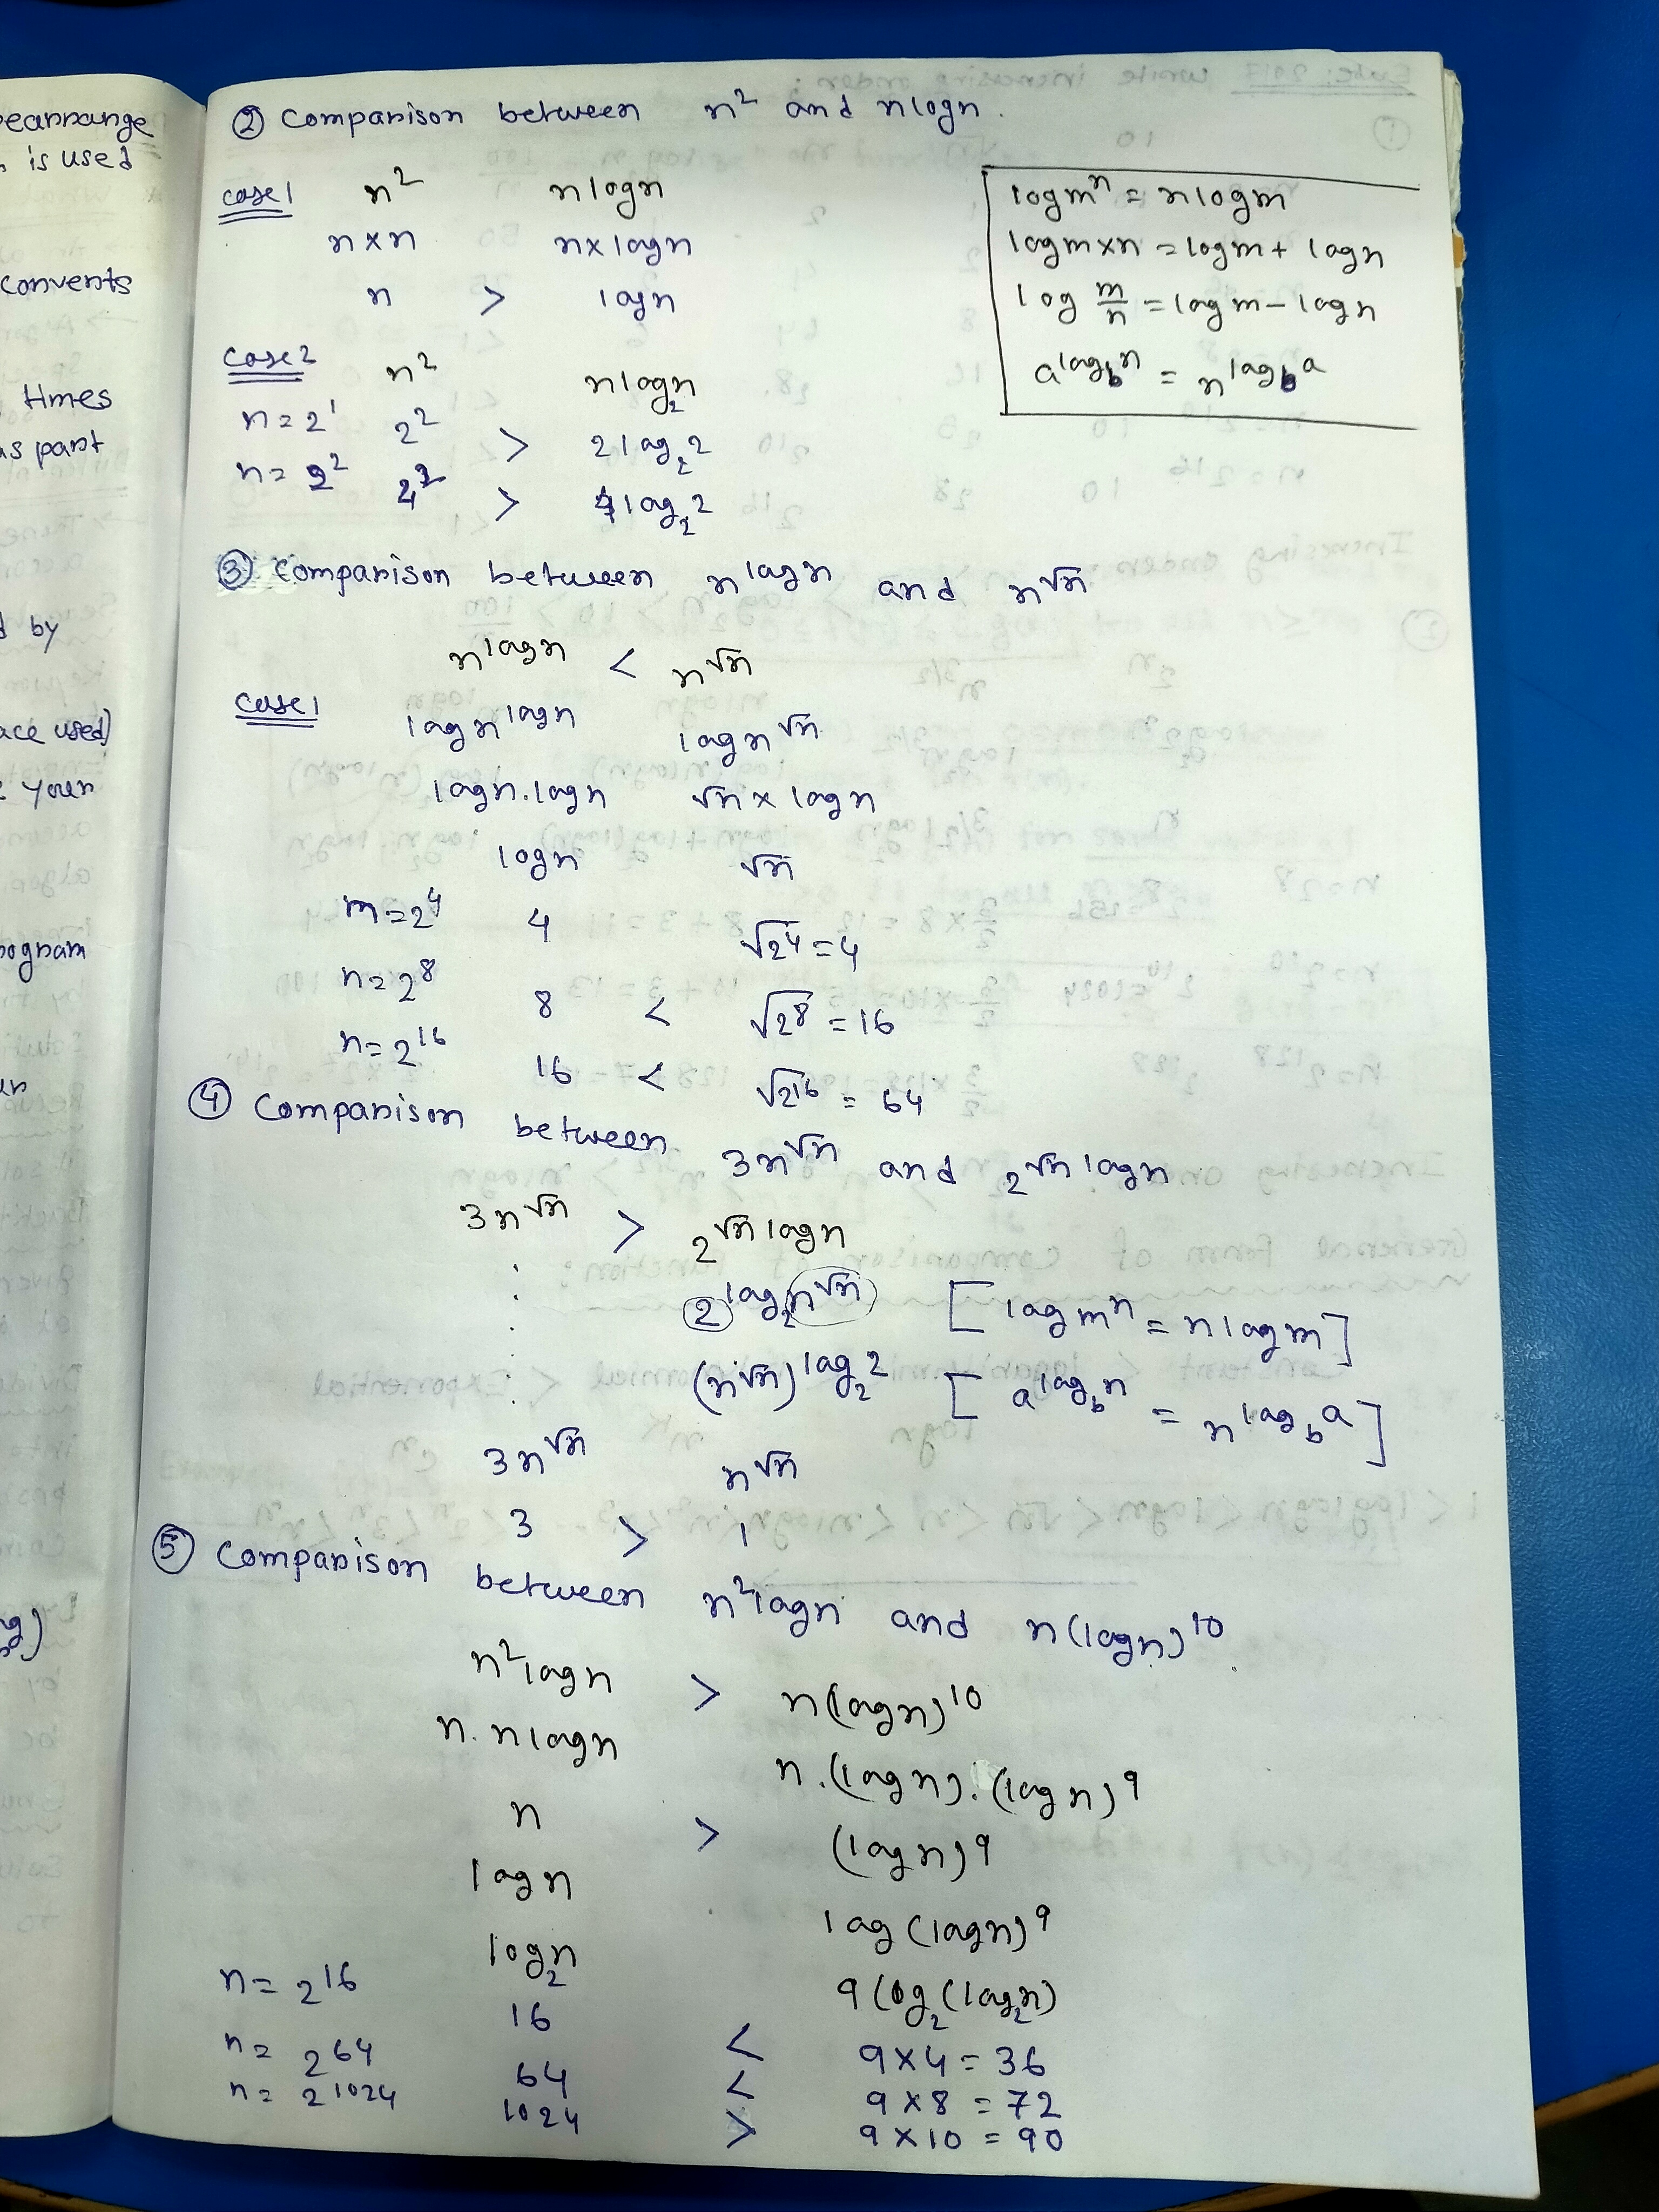 earrange
is used
converts
times
as part
d by
ace used)
your
program
② Comparison between n² and nlogn.
case1 n² nlogn
n×n n×logn
n > logn
logmⁿ = nlogm
logm×n = logm + logn
log m/n = logm − logn
a^log_b n = n^log_b a
case2 n² nlog₂n
n=2¹ 2² > 2log₂2
n=2² 4² > 4log₂2
③ Comparison between n^logn and n^√n
n^logn < n^√n
case1 logn^logn logn^√n
logn.logn √n × logn
logn √n
m=2⁴ 4 √2⁴ = 4
n=2⁸ 8 < √2⁸ = 16
n=2¹⁶ 16 < √2¹⁶ = 64
④ Comparison between 3n^√n and 2^√n logn
3n^√n > 2^√n logn
2^log₂n^√n [logmⁿ = nlogm]
(n^√n)^log₂2 [a^log_b n = n^log_b a]
3n^√n n^√n
3 > 1
⑤ Comparison between n²logn and n(logn)¹⁰
n²logn > n(logn)¹⁰
n.nlogn n.(logn).(logn)⁹
n > (logn)⁹
logn log(logn)⁹
log₂n 9log₂(log₂n)
n=2¹⁶ 16 < 9×4=36
n=2⁶⁴ 64 < 9×8=72
n=2¹⁰²⁴ 1024 > 9×10=90